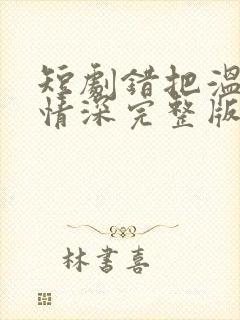 短劇錯把溫
情深完整版
林書喜